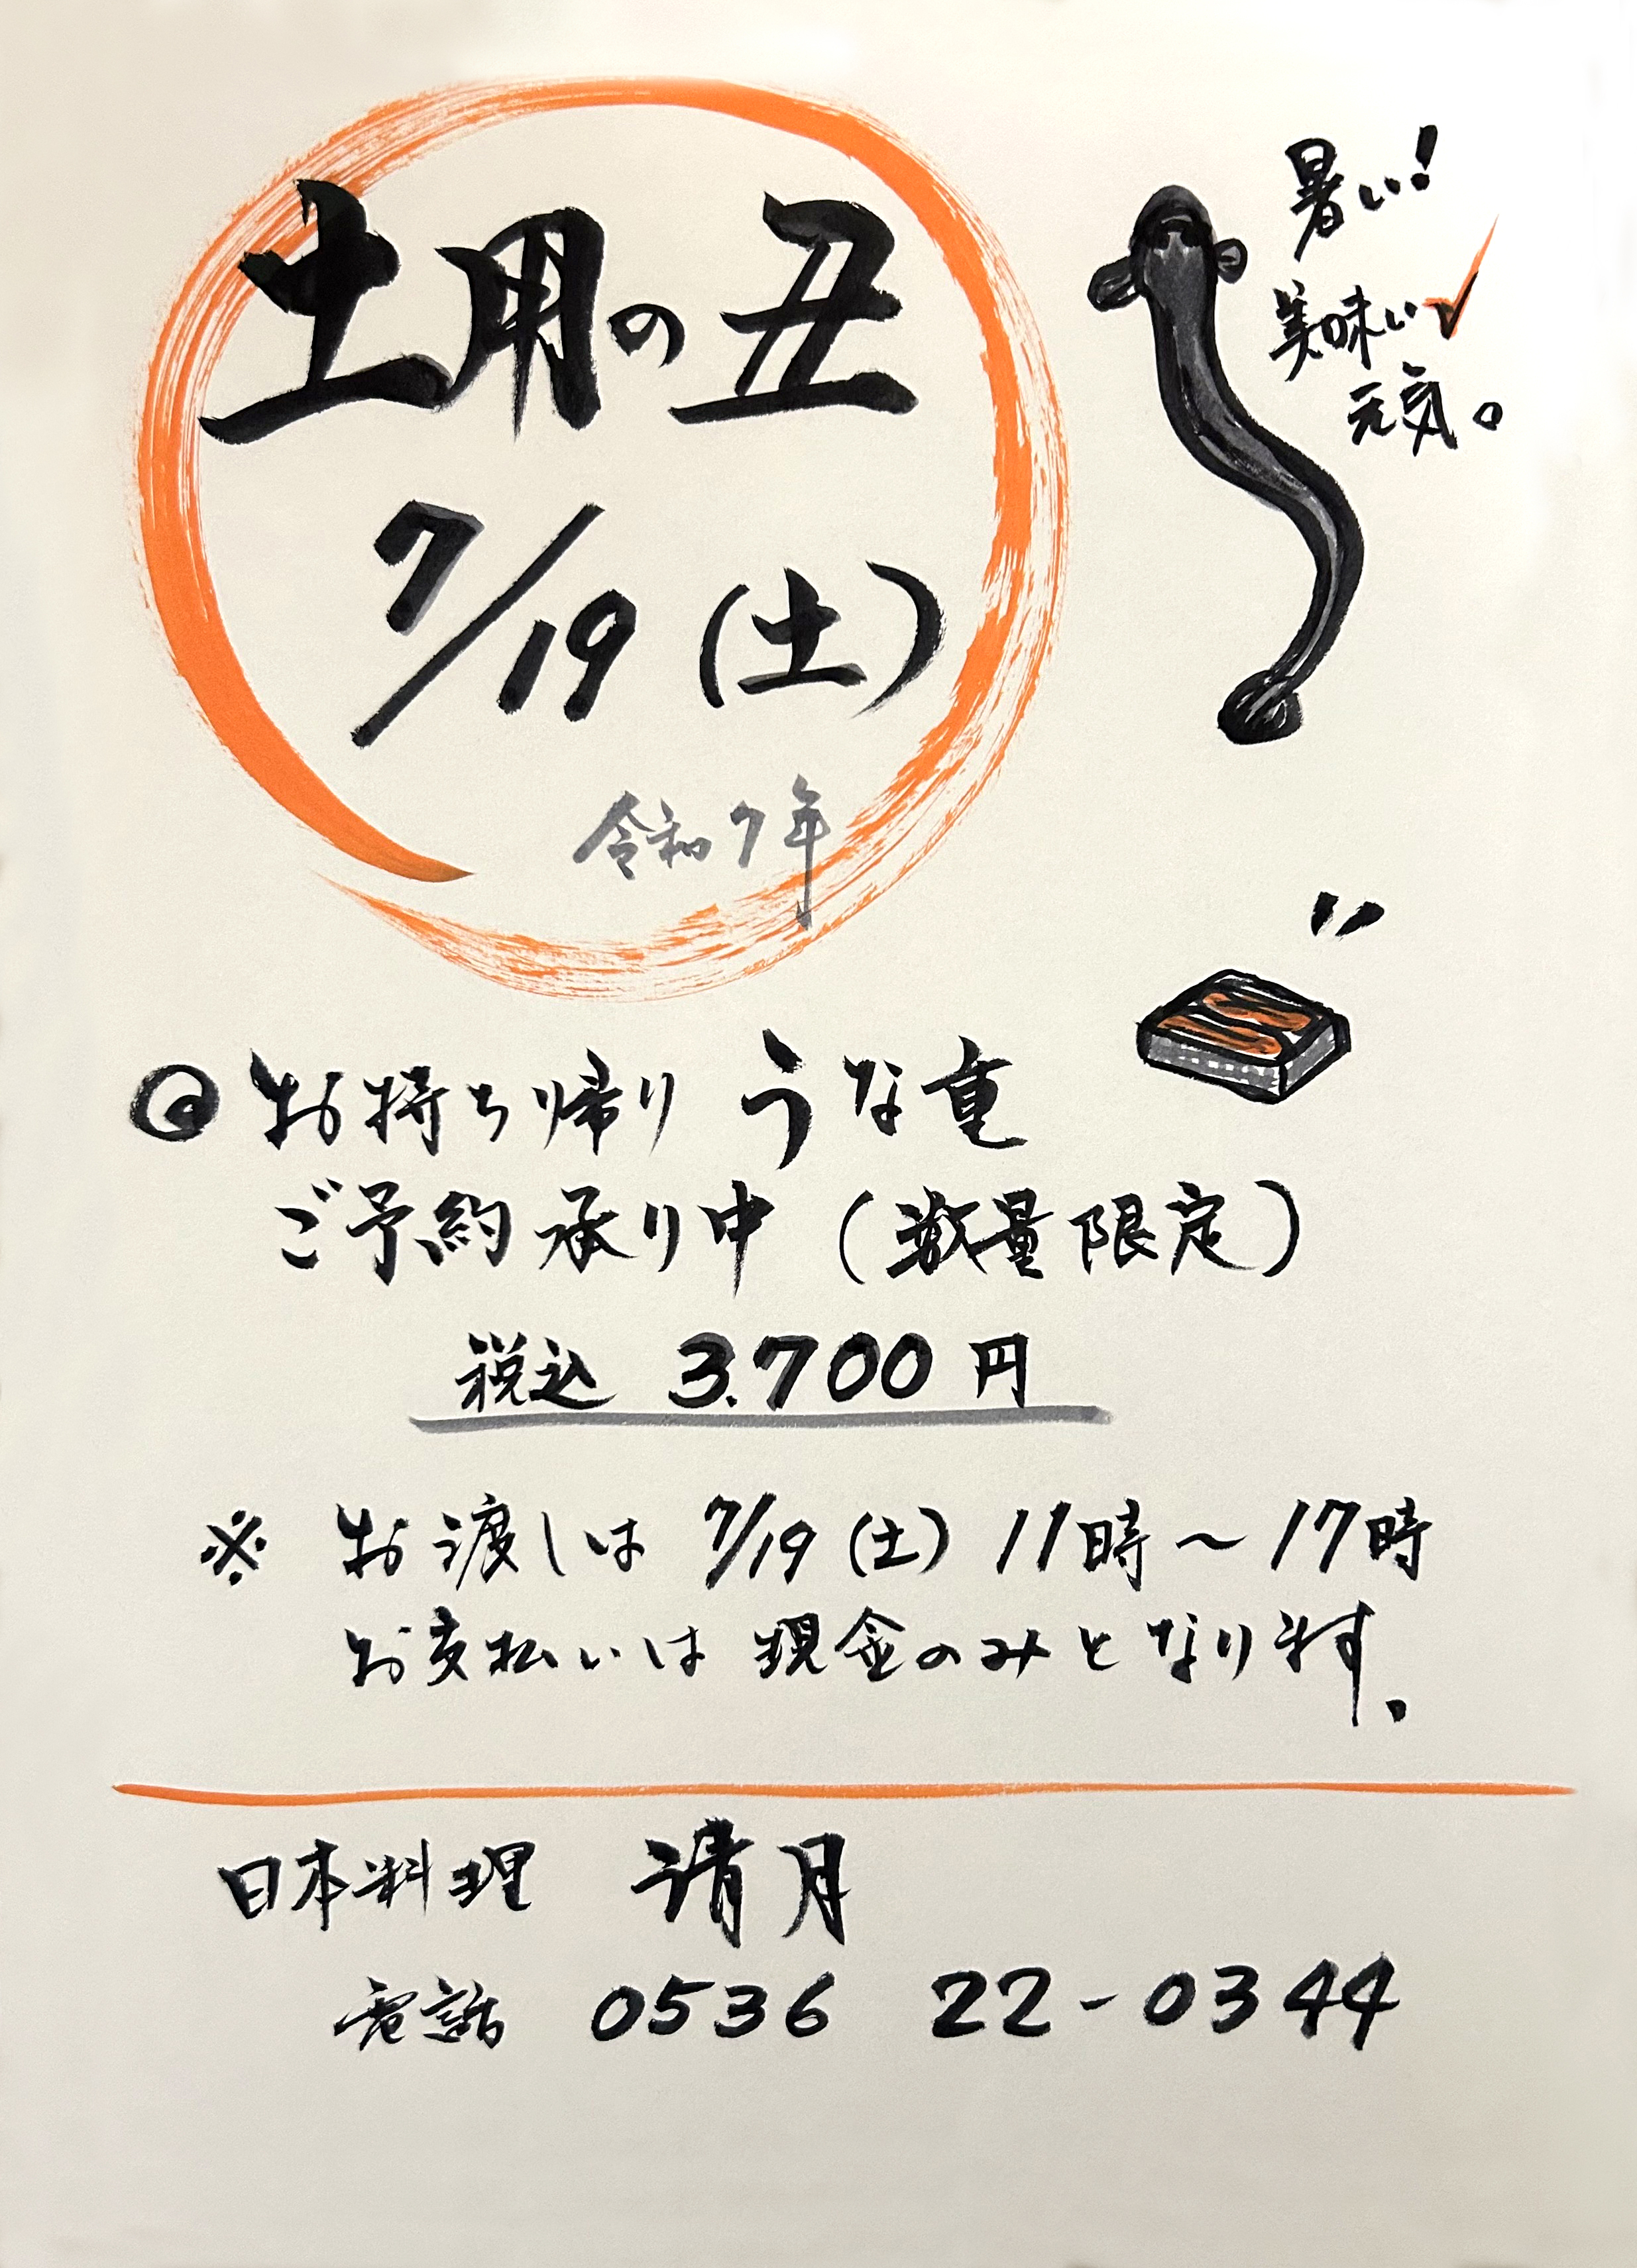 土用の丑
7/19(土)
令和7年
暑い!
美味い✓
元気。
◎お持ち帰り うな重
ご予約承り中(数量限定)
税込 3.700円
※ お渡しは 7/19(土) 11時～17時
お支払いは現金のみとなります。
日本料理 清月
電話 0536 22-0344